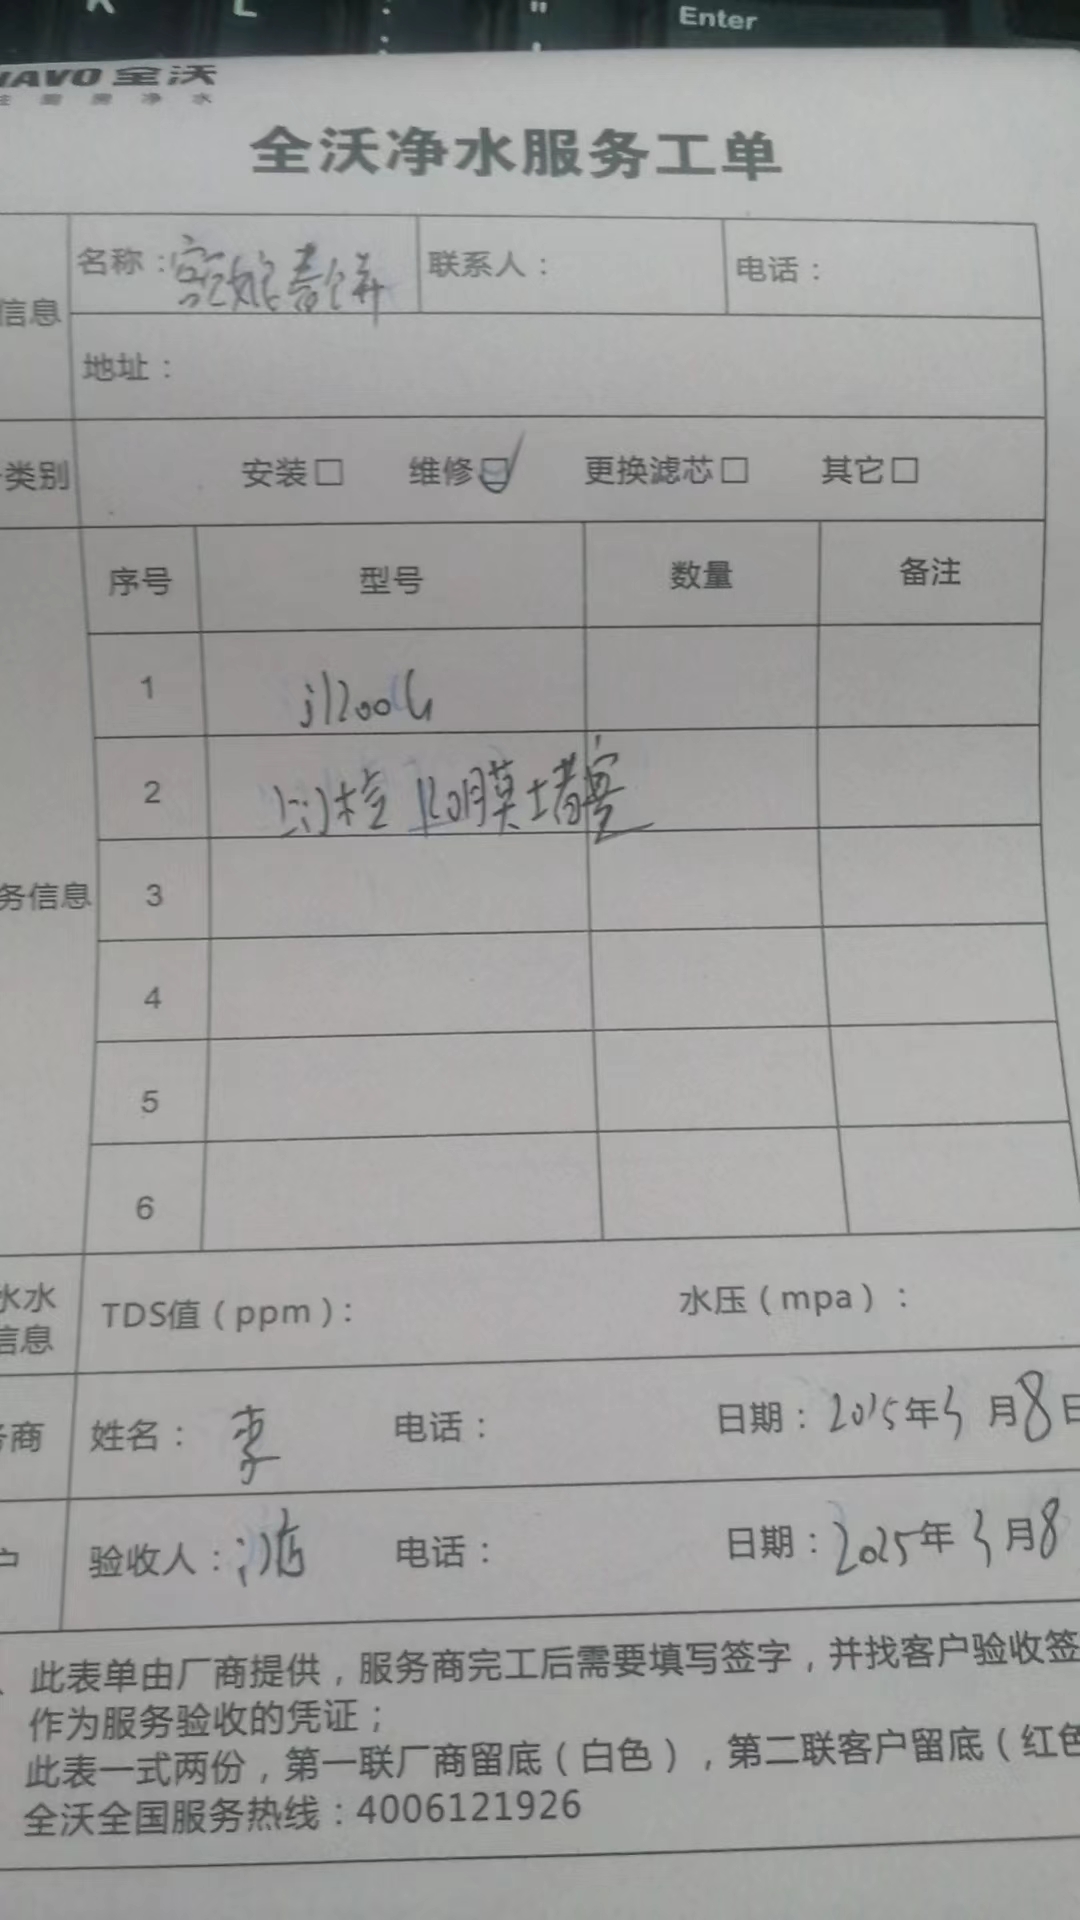 Enter
L
全沃
净水
全沃净水服务工单
信息
名称： 联系人： 电话：
地址：
类别 安装□ 维修☑ 更换滤芯□ 其它□
序号 型号 数量 备注
1
2 RO膜堵塞
务信息 3
4
5
6
水水
信息
TDS值（ppm）： 水压（mpa）：
商 姓名：李 电话： 日期：2025年3月8日
户 验收人： 电话： 日期：2025年3月8
此表单由厂商提供，服务商完工后需要填写签字，并找客户验收签
作为服务验收的凭证；
此表一式两份，第一联厂商留底（白色），第二联客户留底（红色
全沃全国服务热线：4006121926